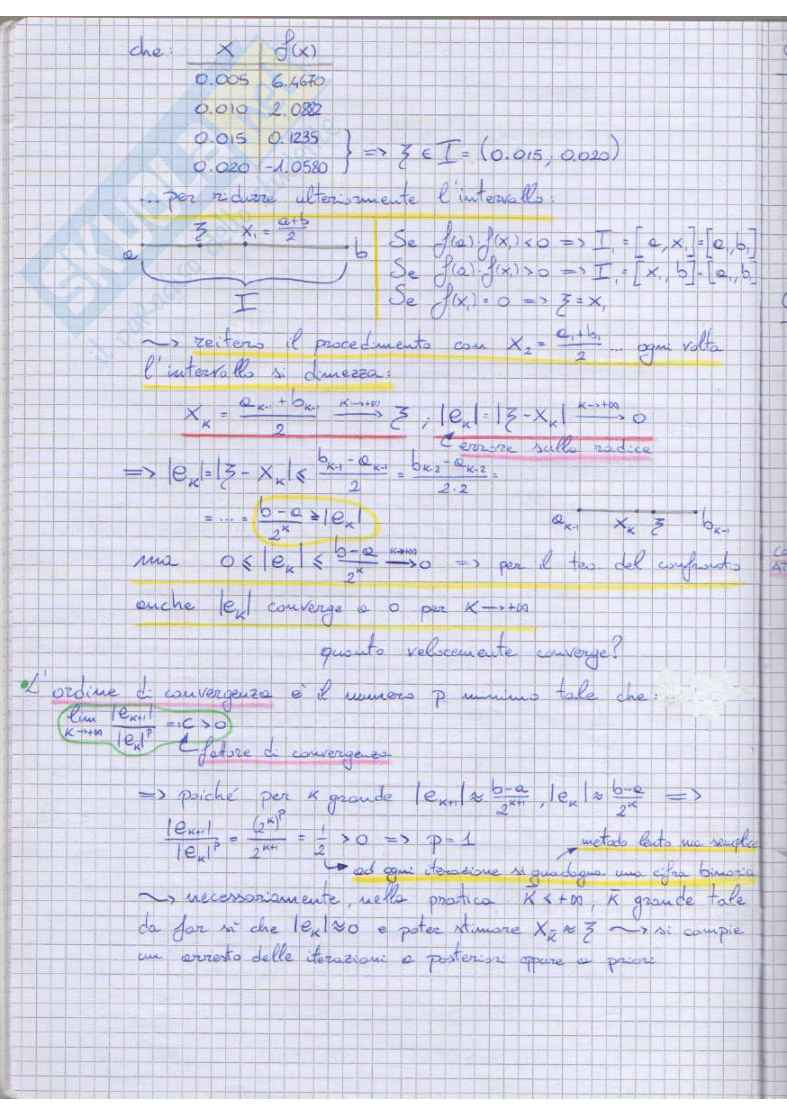 che: x f(x)
0.005 6.4670
0.010 2.0882
0.015 0.1235
0.020 -1.0580 } => ξ ∈ I = (0.015, 0.020)
...per ridurre ulteriormente l'intervallo:
a ξ x₁ = (a+b)/2 b
I
Se f(a)·f(x₁)<0 => I₁ = [a, x₁] = [a, b₁]
Se f(a)·f(x₁)>0 => I₁ = [x₁, b] = [a₁, b]
Se f(x₁) = 0 => ξ = x₁
~> reitero il procedimento con x₂ = (a₁+b₁)/2 ... ogni volta
l'intervallo si dimezza:
x_k = (a_{k-1} + b_{k-1})/2 —k→+∞→ ξ ; |e_k| = |ξ - x_k| —k→+∞→ 0
errore sulla radice
=> |e_k| = |ξ - x_k| ≤ (b_{k-1} - a_{k-1})/2 = (b_{k-2} - a_{k-2})/(2·2) =
= ... = (b-a)/2^k ≥ |e_k|
a_{k-1} x_k ξ b_{k-1}
ma 0 ≤ |e_k| ≤ (b-a)/2^k —k→+∞→ 0 => per il teo del confronto
anche |e_k| converge a 0 per k → +∞
quanto velocemente converge?
• L'ordine di convergenza è il numero p minimo tale che:
lim k→+∞ |e_{k+1}|/|e_k|^p = c > 0
fattore di convergenza
=> poiché per k grande |e_{k+1}| ≈ (b-a)/2^{k+1}, |e_k| ≈ (b-a)/2^k =>
|e_{k+1}|/|e_k|^p = (2^k)^p/2^{k+1} = 1/2 > 0 => p = 1
metodo lento ma semplice
ad ogni iterazione si guadagna una cifra binaria
~> necessariamente, nella pratica k̄ < +∞, k̄ grande tale
da far sì che |e_k| ≈ 0 e poter stimare x_k̄ ≈ ξ ~> si compie
un arresto delle iterazioni a posteriori oppure a priori
SKUOLA
il paradiso dello studente